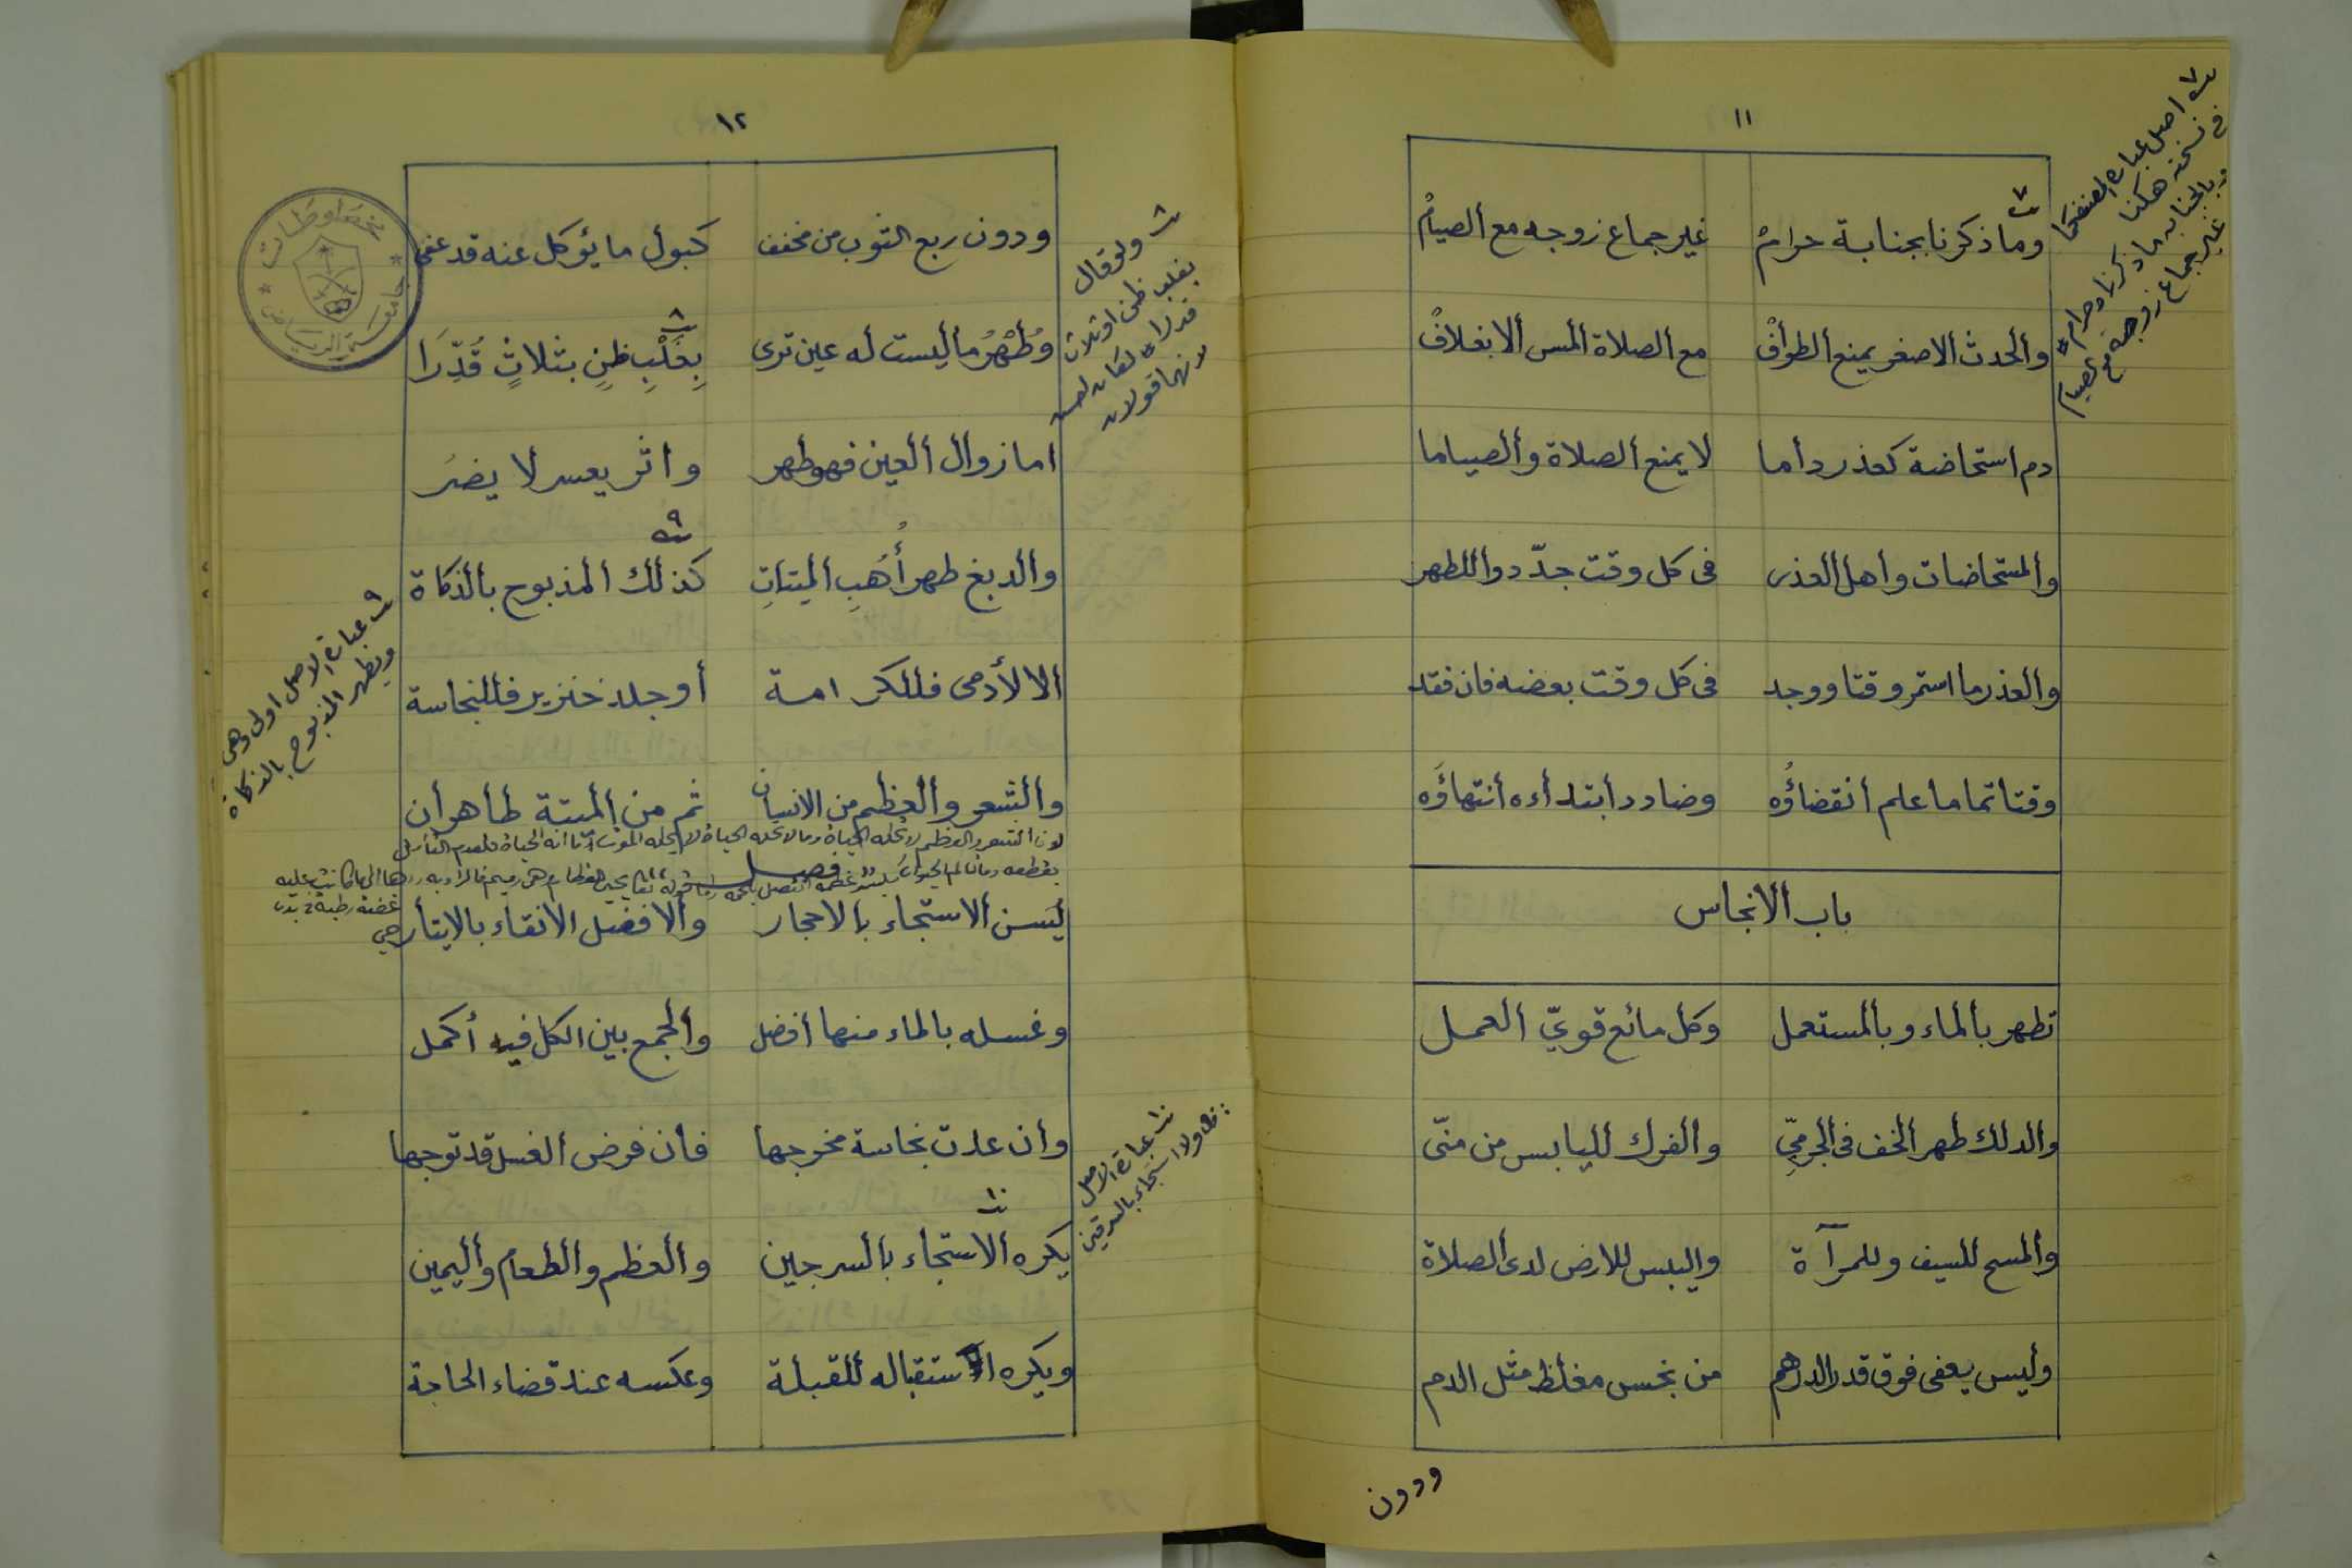 ١١
وما ذكرنا بجنابة حرامْ غير جماع زوجه مع الصيامْ
والحدث الاصغر يمنع الطوافْ مع الصلاة المس الا بغلافْ
دم استحاضة كعذر داما لا يمنع الصلاة والصياما
والمستحاضات واهل العذر فى كل وقت جدّدوا للطهر
والعذر ما استمر وقتا ووجد فى كل وقت بعضه فان فقد
وقتا تماما علم انقضاؤُه وضادد ابتداءه انتهاؤَه
باب الانجاس
تطهر بالماء وبالمستعمل وكل مائع قويّ العمل
والدلك طهر الخف فى الجرميّ والفرك لليابس من منّى
والمسح للسيف وللمرآة واليبس للارض لدى الصلاة
وليس يعفى فوق قدر الدرهم من نجس مغلظ مثل الدم
ودون
٧ اصل عبارة المصنف كما
فى نسخته هكذا
وبالجنابه ما ذكرنا وحرام #
غير جماع زوجه مع الصيام
١٢
ودون ربع الثوب من مخفف كبول ما يؤكل عنه قد عفى
وطُهْرُ ما ليست له عين ترى بِغَلْبِ ظنٍ بثلاثٍ قُدِّرَا
اما زوال العين فهو طهر واثر يعسر لا يضرَ
والدبغ طهر أُهُبِ الميتاتِ كذلك المذبوح بالذكاة
الا الأدمى فللكرامة أو جلد خنزير فللنجاسة
والشعر والعظم من الانسان ثم من الميتة طاهران
لان الشعر والعظم لا تحله الحياة وما لا تحله الحياة لا يحله الموت
فصل
يسن الاستنجاء بالاحجار والافضل الانقاء بالايتار
وغسله بالماء منها أفضل والجمع بين الكل فيه أكمل
وان عدت نجاسة مخرجها فان فرض الغسل قد توجها
يكره الاستنجاء بالسرجين والعظم والطعام واليمين
ويكره استقباله للقبلة وعكسه عند قضاء الحاجة
٨ ولو قال
بغلب ظن او ثلاث
قدرا # لكان احسن
لانهما قولان
٩ عبارة الاصل اولى وهى
ويطهر المذبوح بالذكاة
١٠ عبارة الاصل
ولا استنجاء بالسرقين
مخطوطات
جامعة الرياض